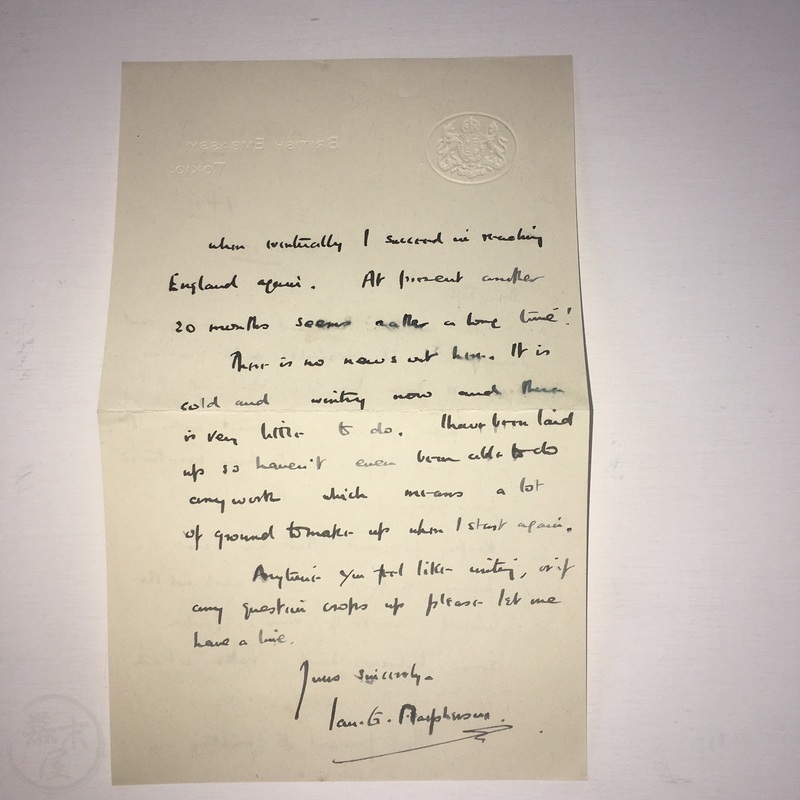 BRITISH EMBASSY
TOKIO.
when eventually I succeed in reaching
England again. At present another
20 months seems rather a long time!
There is no news out here. It is
cold and wintry now and there
is very little to do. I have been laid
up so haven't even been able to do
any work which means a lot
of ground to make up when I start again.
Anytime you feel like writing, or if
any question crops up please let me
have a line.
Yours sincerely.
Ian. G. Macpherson.